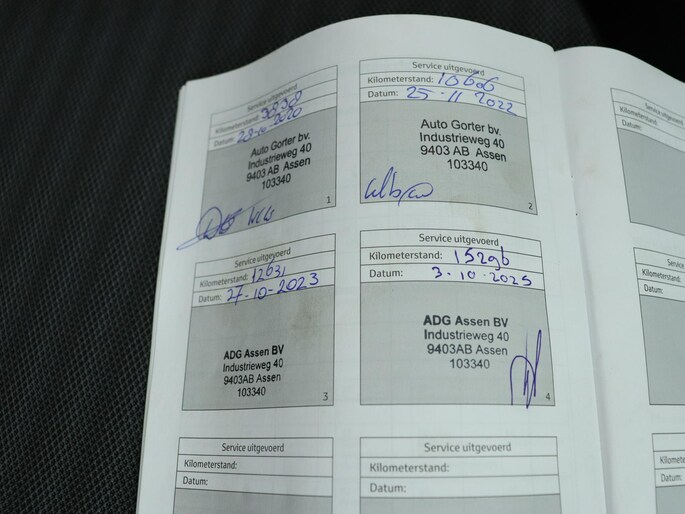 Service uitgevoerd
Kilometerstand:
Datum:
Auto Gorter bv.
Industrieweg 40
9403 AB Assen
103340
1
Service uitgevoerd
Kilometerstand: 10606
Datum: 25-11 2022
Auto Gorter bv.
Industrieweg 40
9403 AB Assen
103340
2
Service uitgevoerd
Kilometerstand: 12631
Datum: 27-10-2023
ADG Assen BV
Industrieweg 40
9403AB Assen
103340
3
Service uitgevoerd
Kilometerstand: 15296
Datum: 3-10-2025
ADG Assen BV
Industrieweg 40
9403AB Assen
103340
4
Service uitgevoerd
Kilometerstand:
Datum:
Service uitgevoerd
Kilometerstand:
Datum:
Service
Kilometerstand:
Datum:
Service
Kilometerstand:
Datum:
Kilomete
Datum: